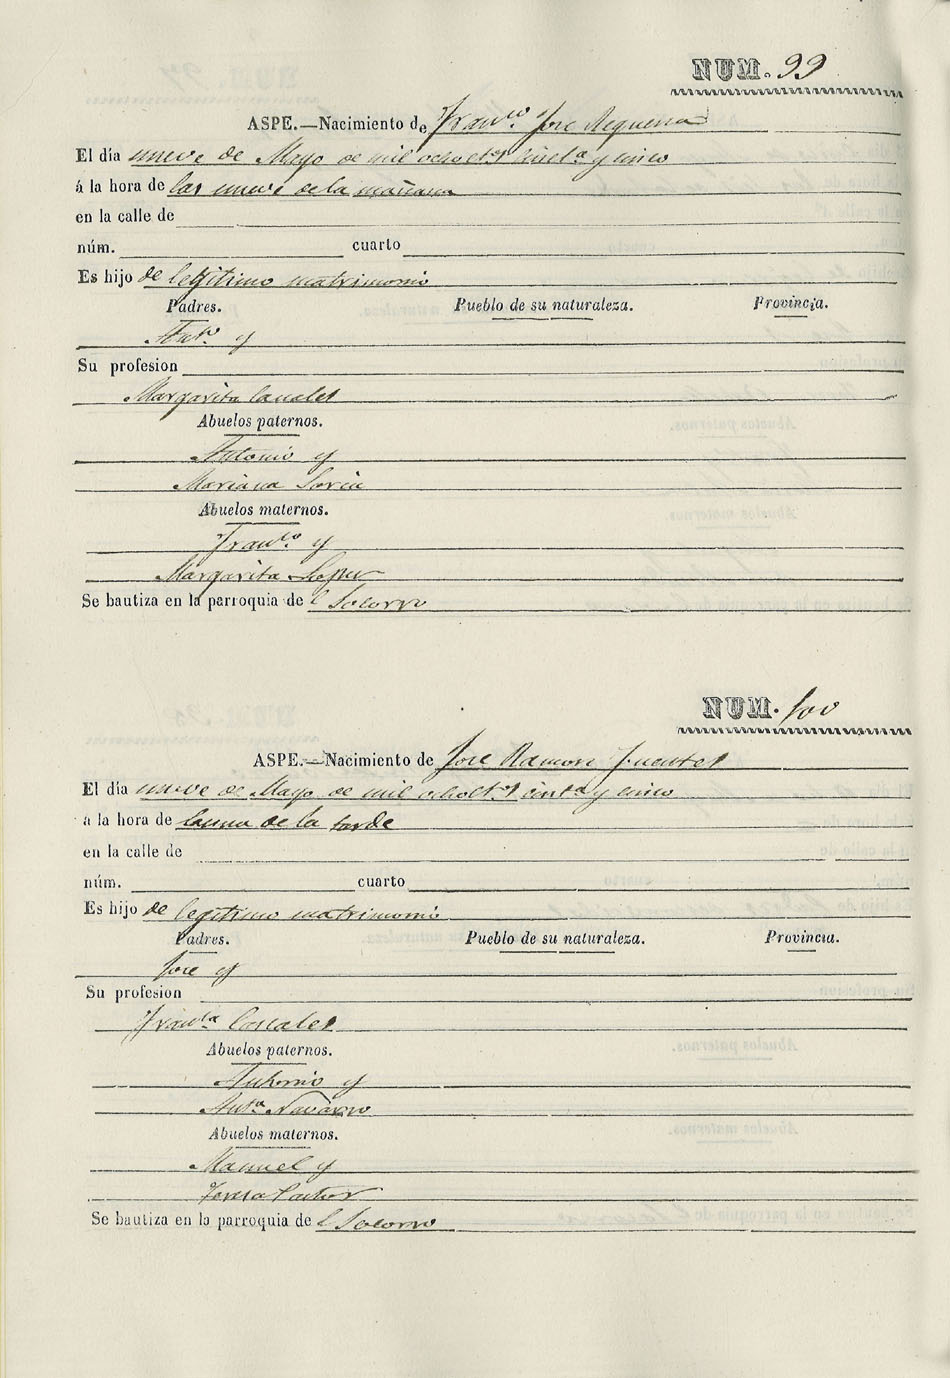 NUM. 99
ASPE.—Nacimiento de Franco. Jose Requena
El día nueve de Mayo de mil ochocts. y cinco
á la hora de las nueve de la mañana
en la calle de
núm. cuarto
Es hijo de legitimo matrimonio
Padres. Pueblo de su naturaleza. Provincia.
Anto. y
Su profesion
Margarita Canales
Abuelos paternos.
Antonio y
Mariana Soria
Abuelos maternos.
Franco. y
Margarita Lopez
Se bautiza en la parroquia de l Socorro
NUM. 100
ASPE.—Nacimiento de Jose Ramon Fuentes
El día nueve de Mayo de mil ochocts. cinta y cinco
á la hora de launa de la tarde
en la calle de
núm. cuarto
Es hijo de legitimo matrimonio
Padres. Pueblo de su naturaleza. Provincia.
Jose y
Su profesion
Franca
Abuelos paternos.
Antonio y
Anta. Navarro
Abuelos maternos.
Manuel y
Teresa Pastor
Se bautiza en la parroquia de l Socorro